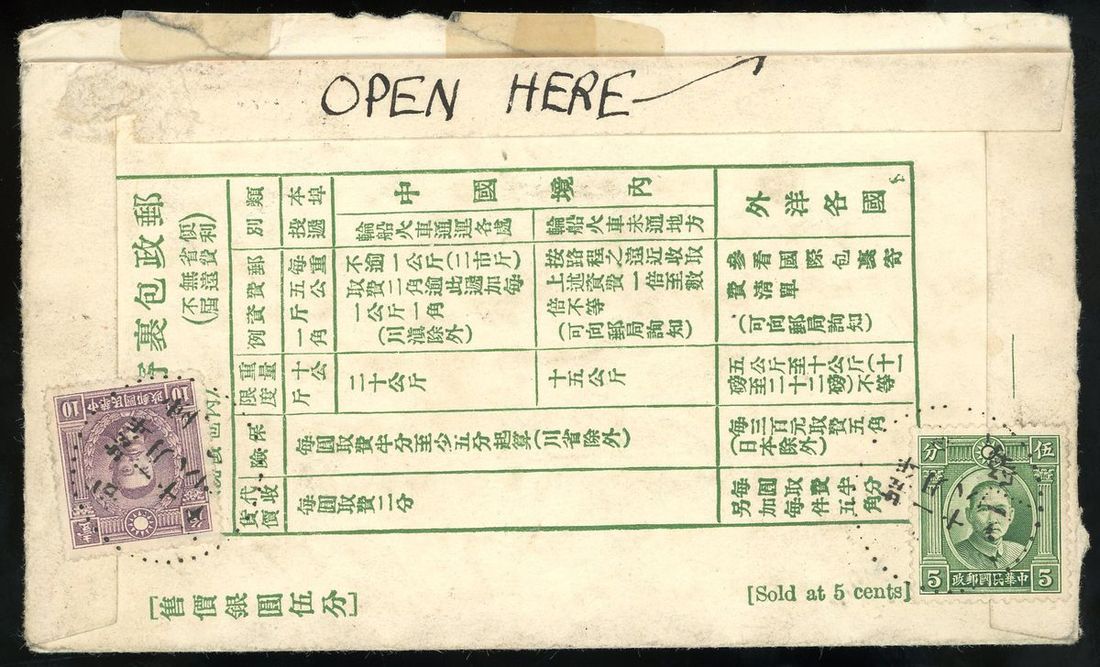 OPEN HERE
郵政包裹
(不無省便
屆遠費利)
類別
本埠投遞
中國境內
輪船火車通運各處
輪船火車未通地方
外洋各國
郵費資例
每重五公斤一角
不逾一公斤(三市斤)
取費二角逾此遞加每
一公斤一角
(川滇除外)
按路程之遠近收取
上述資費一倍至數
倍不等
(可向郵局詢知)
參看國際包裹寄
費清單
(可向郵局詢知)
重量限度
十公斤
二十公斤
十五公斤
五公斤至十公斤(十一
磅至二十二磅)不等
保險
每圓取費半分至少五分起算(川省除外)
每三百元取費五角
(日本除外)
代收貨價
每圓取費二分
每圓取費半分
另加每件五角
[售價銀圓伍分]
[Sold at 5 cents]
10 中華民國郵政 10
伍分
5 中華民國郵政 5